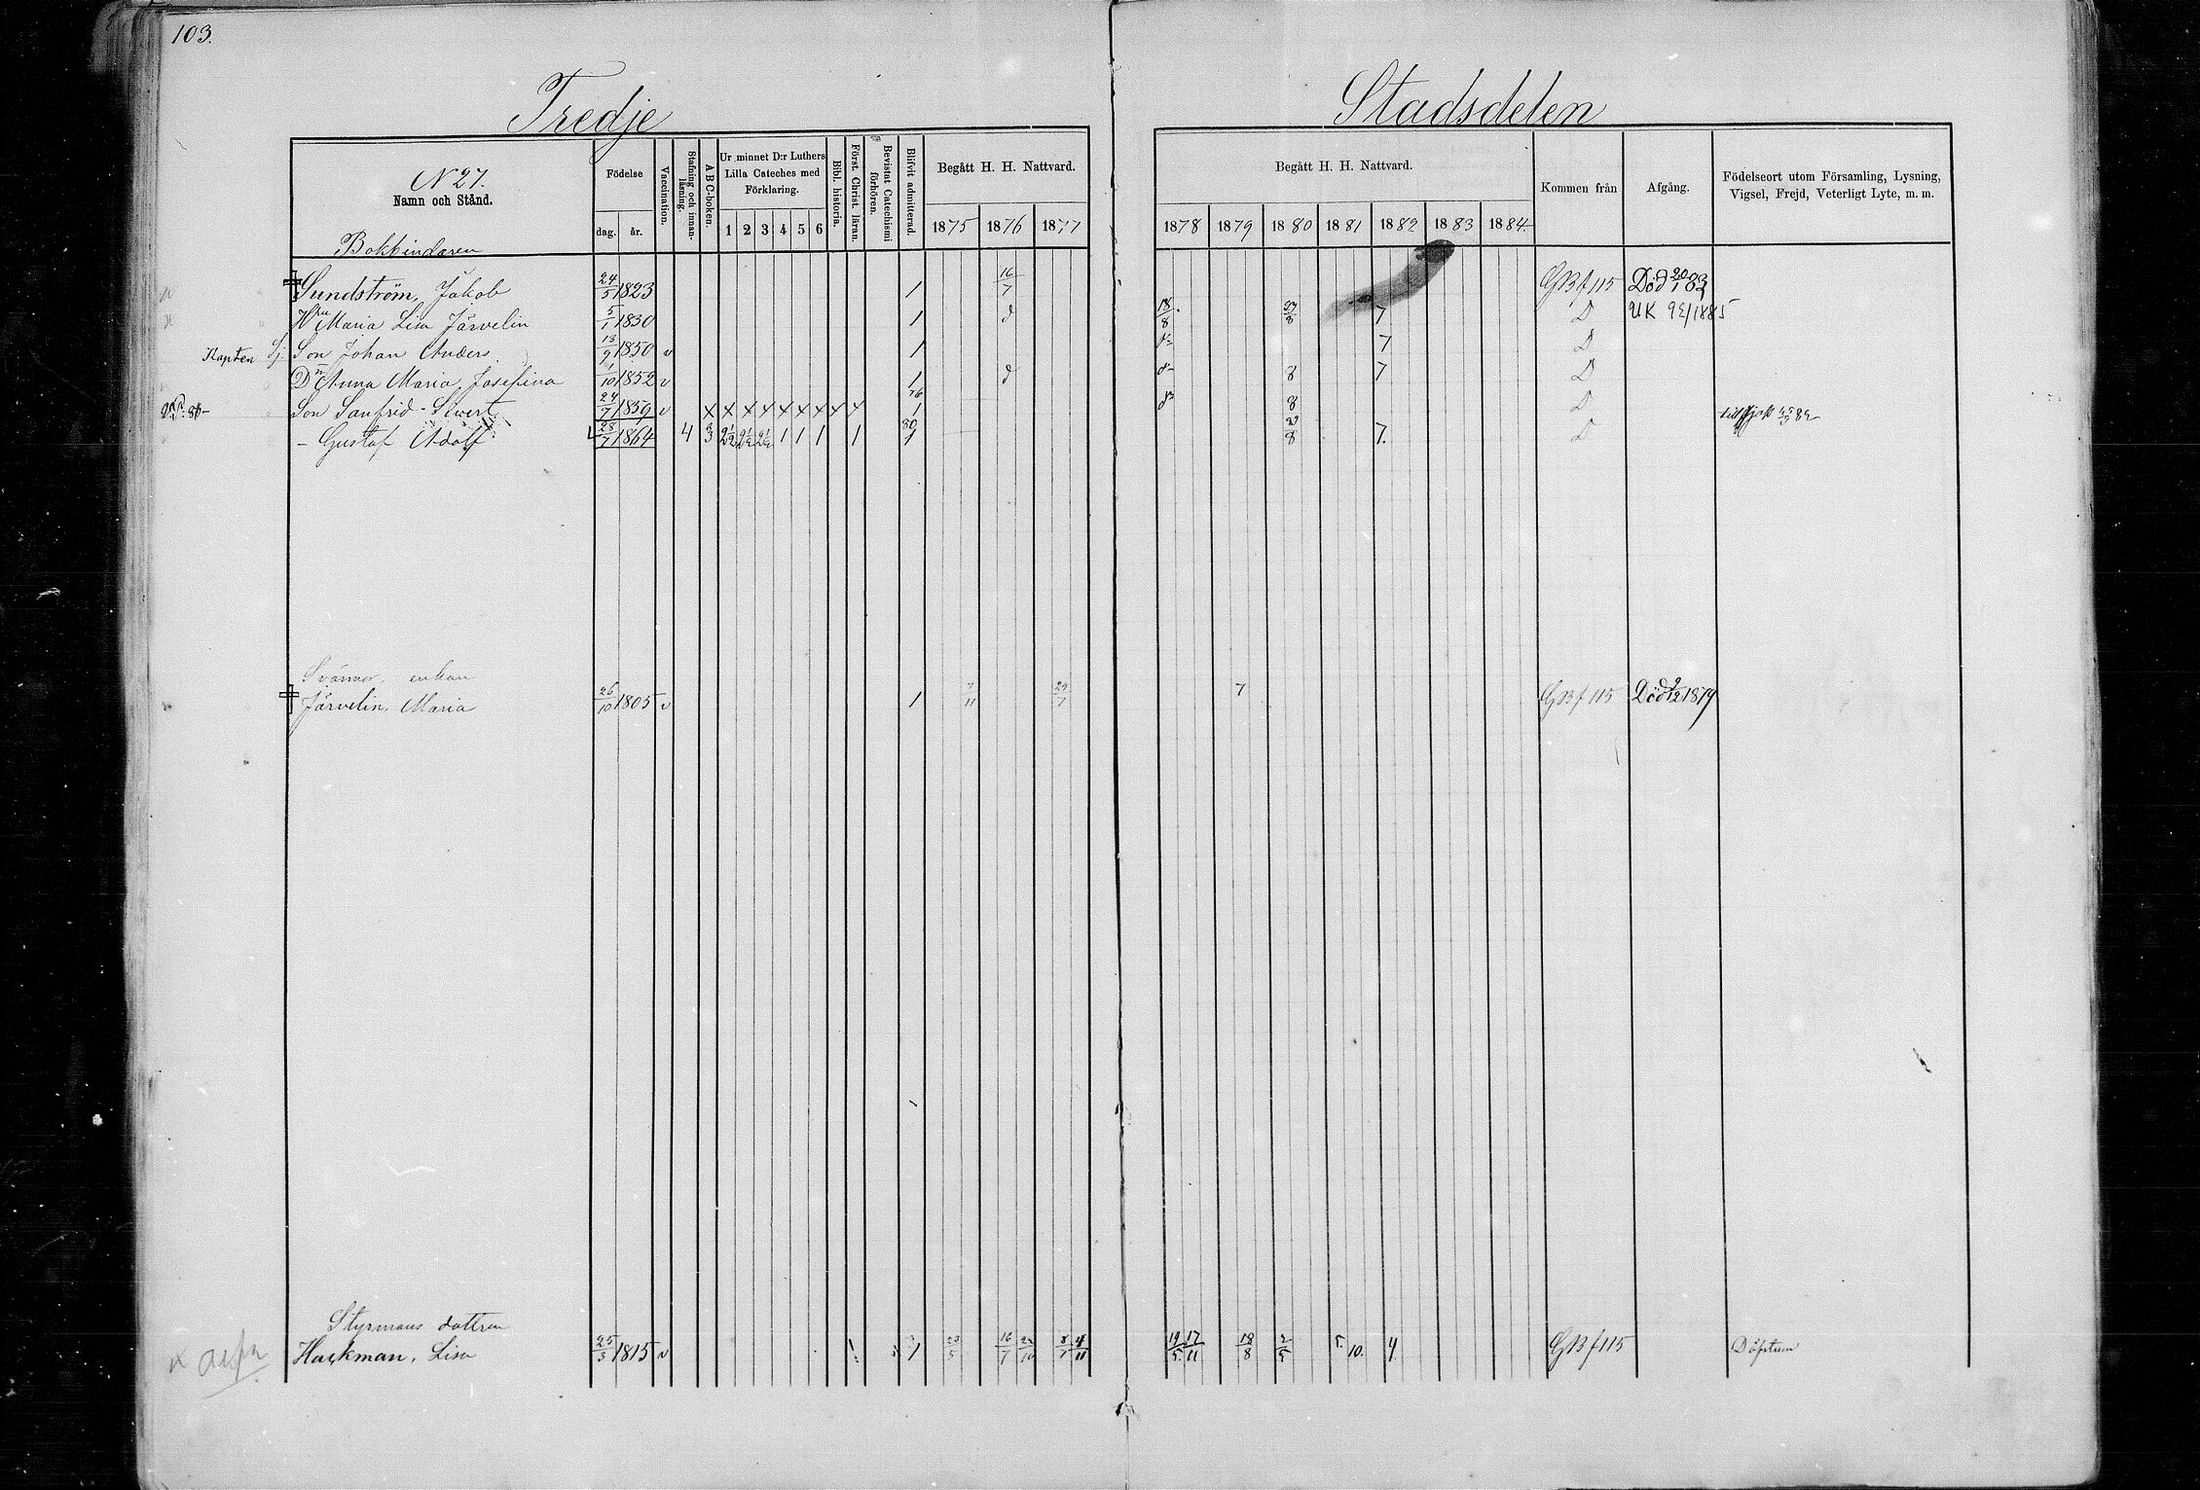 103.
Tredje Stadsdelen
N 27.
Namn och Stånd.
Födelse
dag. år.
Vaccination.
Stafning och innanläsning.
ABC-boken.
Ur minnet D:r Luthers Lilla Cateches med Förklaring.
1 2 3 4 5 6
Bibl. historia.
Först. Christ. läran.
Bevistat Catechismi förhören.
Blifvit admitterad.
Begått H. H. Nattvard.
1875 1876 1877
Begått H. H. Nattvard.
1878 1879 1880 1881 1882 1883 1884
Kommen från
Afgång.
Födelseort utom Församling, Lysning, Vigsel, Frejd, Veterligt Lyte, m. m.
Bokbindaren
Sundström, Jakob 24/5 1823 1 16/7 GB f 115 Död 20/1 83
Hru Maria Lisa Järvelin 5/1 1830 1 d 18/8 7 D UK 93/1885
Kapten Sj. Son Johan Anders 13/9 1850 v 1 7 D
Dr Anna Maria Josefina 1/10 1852 v 1 d 8 7 D
Son Sanfrid Sivert 24/7 1859 v x x x x x x x x x 76 1 8 D
- Gustaf Adolf 28/7 1864 4 3 2½ 2½ 2½ 1 1 1 1 80 1 7. D
enkan
Järvelin, Maria 26/10 1805 v 1 7/11 29/7 7 GB f 115 Död 9/12 1879
Styrmans dottren
Hackman, Lisa 25/3 1815 v 1 1 23/5 16/7 4/11 19/5 17/11 18/8 2/5 5. 10. 4. GB f 115 Döfstum